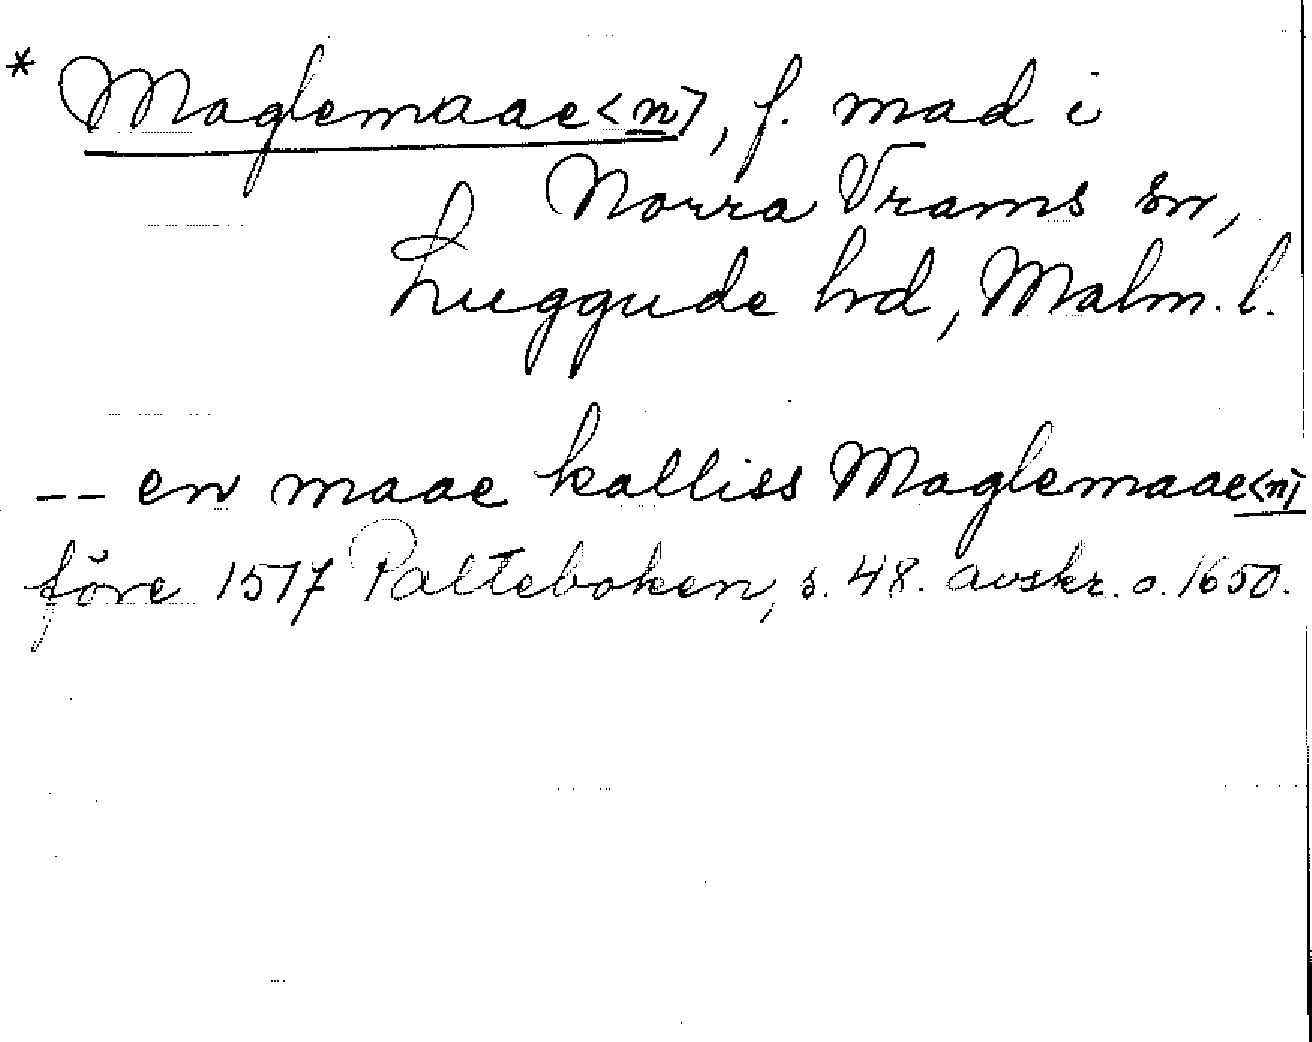 * Maglemaae<n>, f. mad i
Norra Vrams sn,
Luggude hrd, Malm. l.
-- en maae kalliss Maglemaae<n>
före 1517 Palteboken, s. 48. avskr. o. 1650.